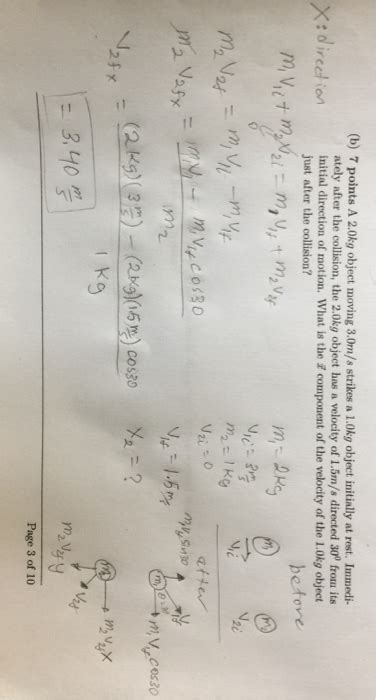 (b) 7 points A 2.0kg object moving 3.0m/s strikes a 1.0kg object initially at rest. Immedi-
ately after the collision, the 2.0kg object has a velocity of 1.5m/s directed 30° from its
initial direction of motion. What is the x⃗ component of the velocity of the 1.0kg object
just after the collision?
X: direction
m₁V₁ᵢ + m₂V₂ᵢ = m₁V₁f + m₂V₂f
0
m₂V₂f = m₁V₁ᵢ - m₁V₁f
m₂V₂fx = m₁V₁ - m₁V₁f cos30
m₂
V₂fx = (2kg)(3 m/s) - (2kg)(1.5 m/s) cos30
1kg
= 3.40 m/s
m₁ = 2kg
V₁ᵢ = 3 m/s
m₂ = 1kg
V₂ᵢ = 0
V₁f = 1.5 m/s
X₂ = ?
before
m₁ m₂
V₁ᵢ V₂ᵢ
after
m₁V₁ sin30
V₁f
m₁V₁f cos30
m₂V₂fX
V₂f
m₂V₂fy
Page 3 of 10